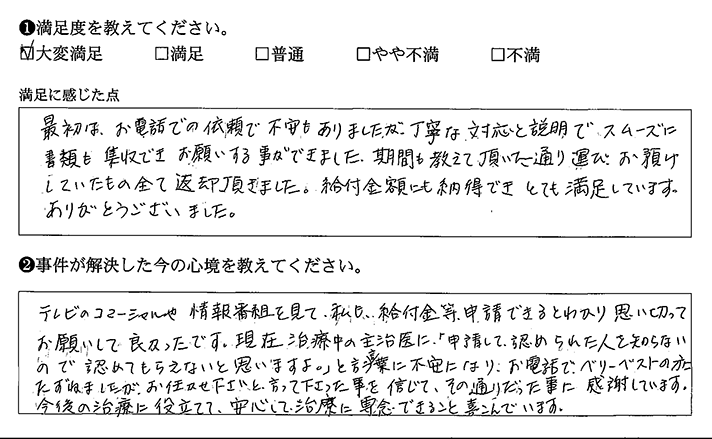 ❶満足度を教えてください。
☑大変満足 □満足 □普通 □やや不満 □不満
満足に感じた点
最初は、お電話での依頼で不安もありましたが、丁寧な対応と説明でスムーズに
書類も集収できお願いする事ができました。期間も教えて頂いた通り運び、お預け
していたもの全て返却頂きました。給付金額にも納得できとても満足しています。
ありがとうございました。
❷事件が解決した今の心境を教えてください。
テレビのコマーシャルや情報番組を見て、私も、給付金等、申請できるとわかり思い切って
お願いして良かったです。現在治療中の主治医に、「申請して、認められた人を知らない
ので認めてもらえないと思いますよ。」と言葉に不安になり、お電話で、ベリーベストの方に
たずねましたが、お任せ下さいと、言って下さった事を信じて、その通りだった事に感謝しています。
今後の治療に役立てて、安心して治療に専念できること喜こんでいます。